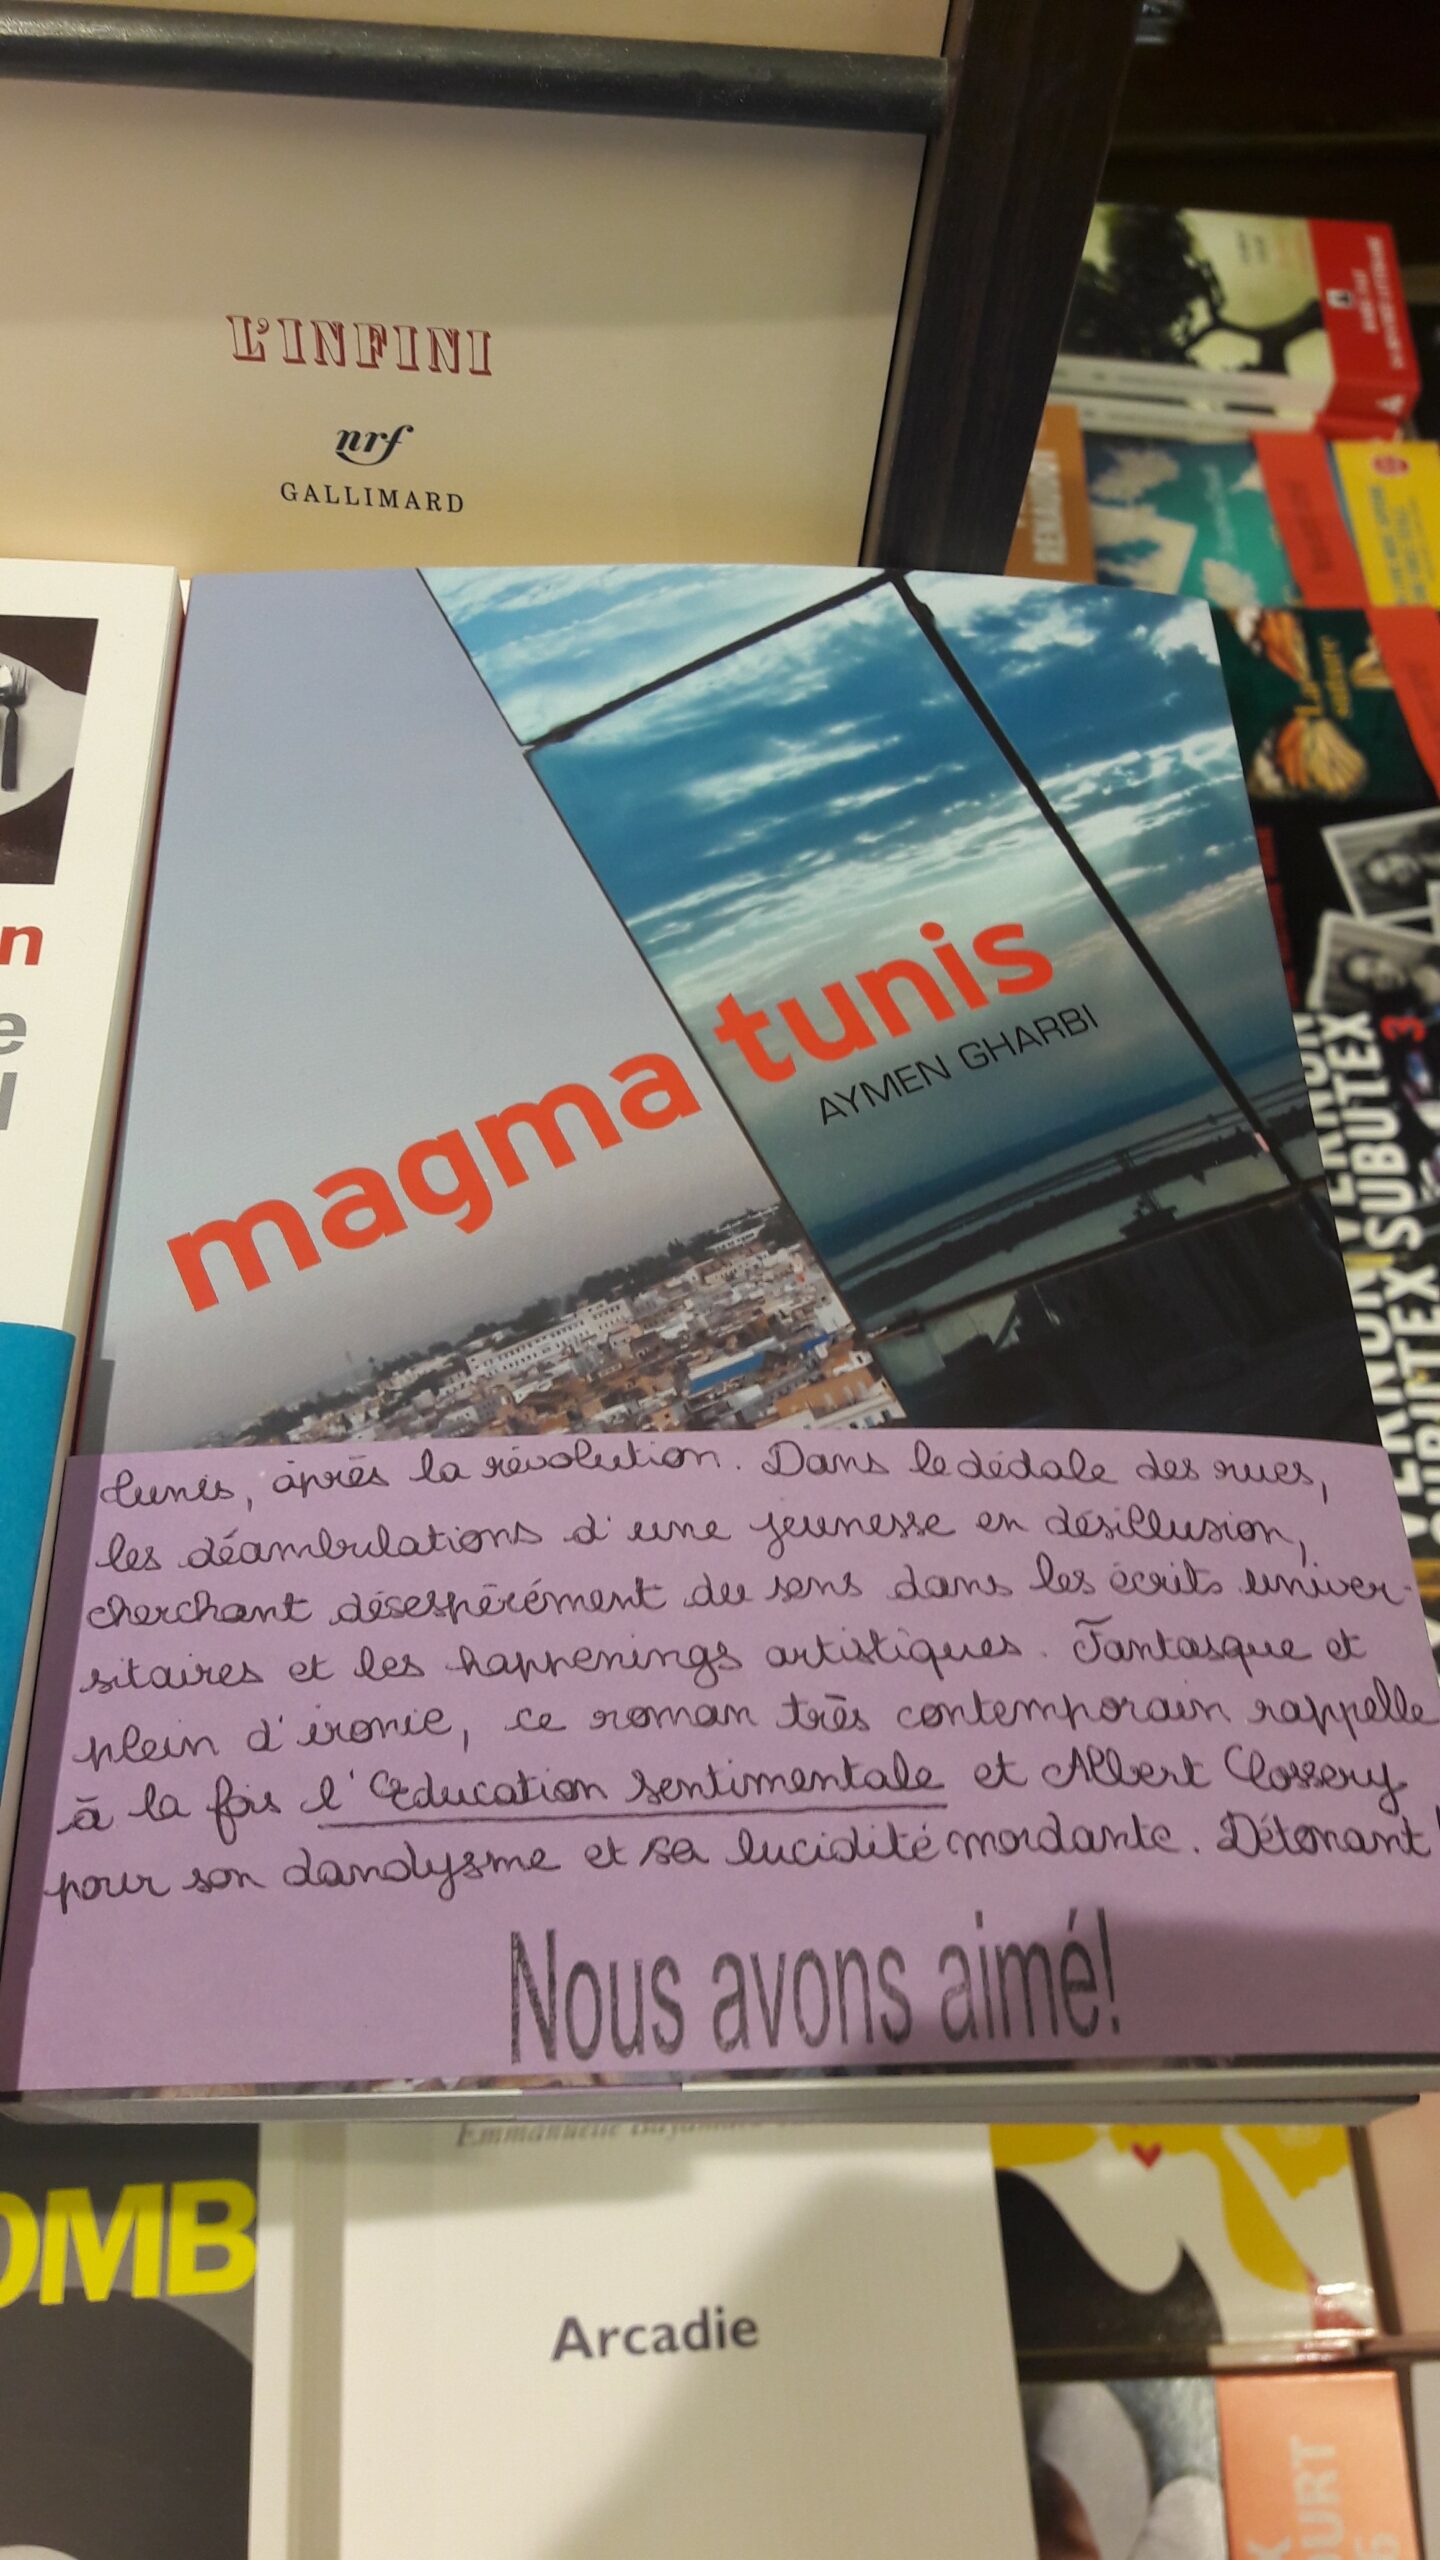 L'INFINI
nrf
GALLIMARD
RENAUDOT
La
nature
n
e
magma tunis
AYMEN GHARBI
VERNON
SUBUTEX 3
VERNON
SUBUTEX
tunis, après la révolution. Dans le dédale des rues,
les déambulations d'une jeunesse en désillusion,
cherchant désespérément du sens dans les écrits univer-
sitaires et les happenings artistiques. Fantasque et
plein d'ironie, ce roman très contemporain rappelle
à la fois l'Education sentimentale et Albert Cossery
pour son dandysme et sa lucidité mordante. Détonant !
Nous avons aimé!
OMB
Emmanuelle
Arcadie